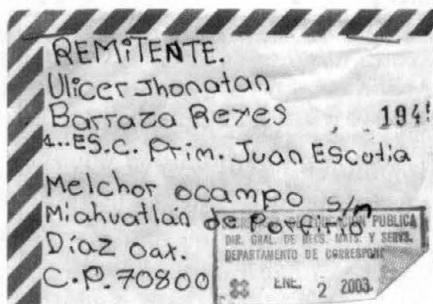 REMITENTE.
Ulicer Jhonatan
Barraza Reyes
194
ESC. Prim. Juan Escutia
Melchor ocampo s/n
Miahuatlán de Porfirio
Díaz Oax.
C.P. 70800
PUBLICA
DIR. GRAL. DE RECS. MATS. Y SERVS.
DEPARTAMENTO DE
ENE. 2 2003